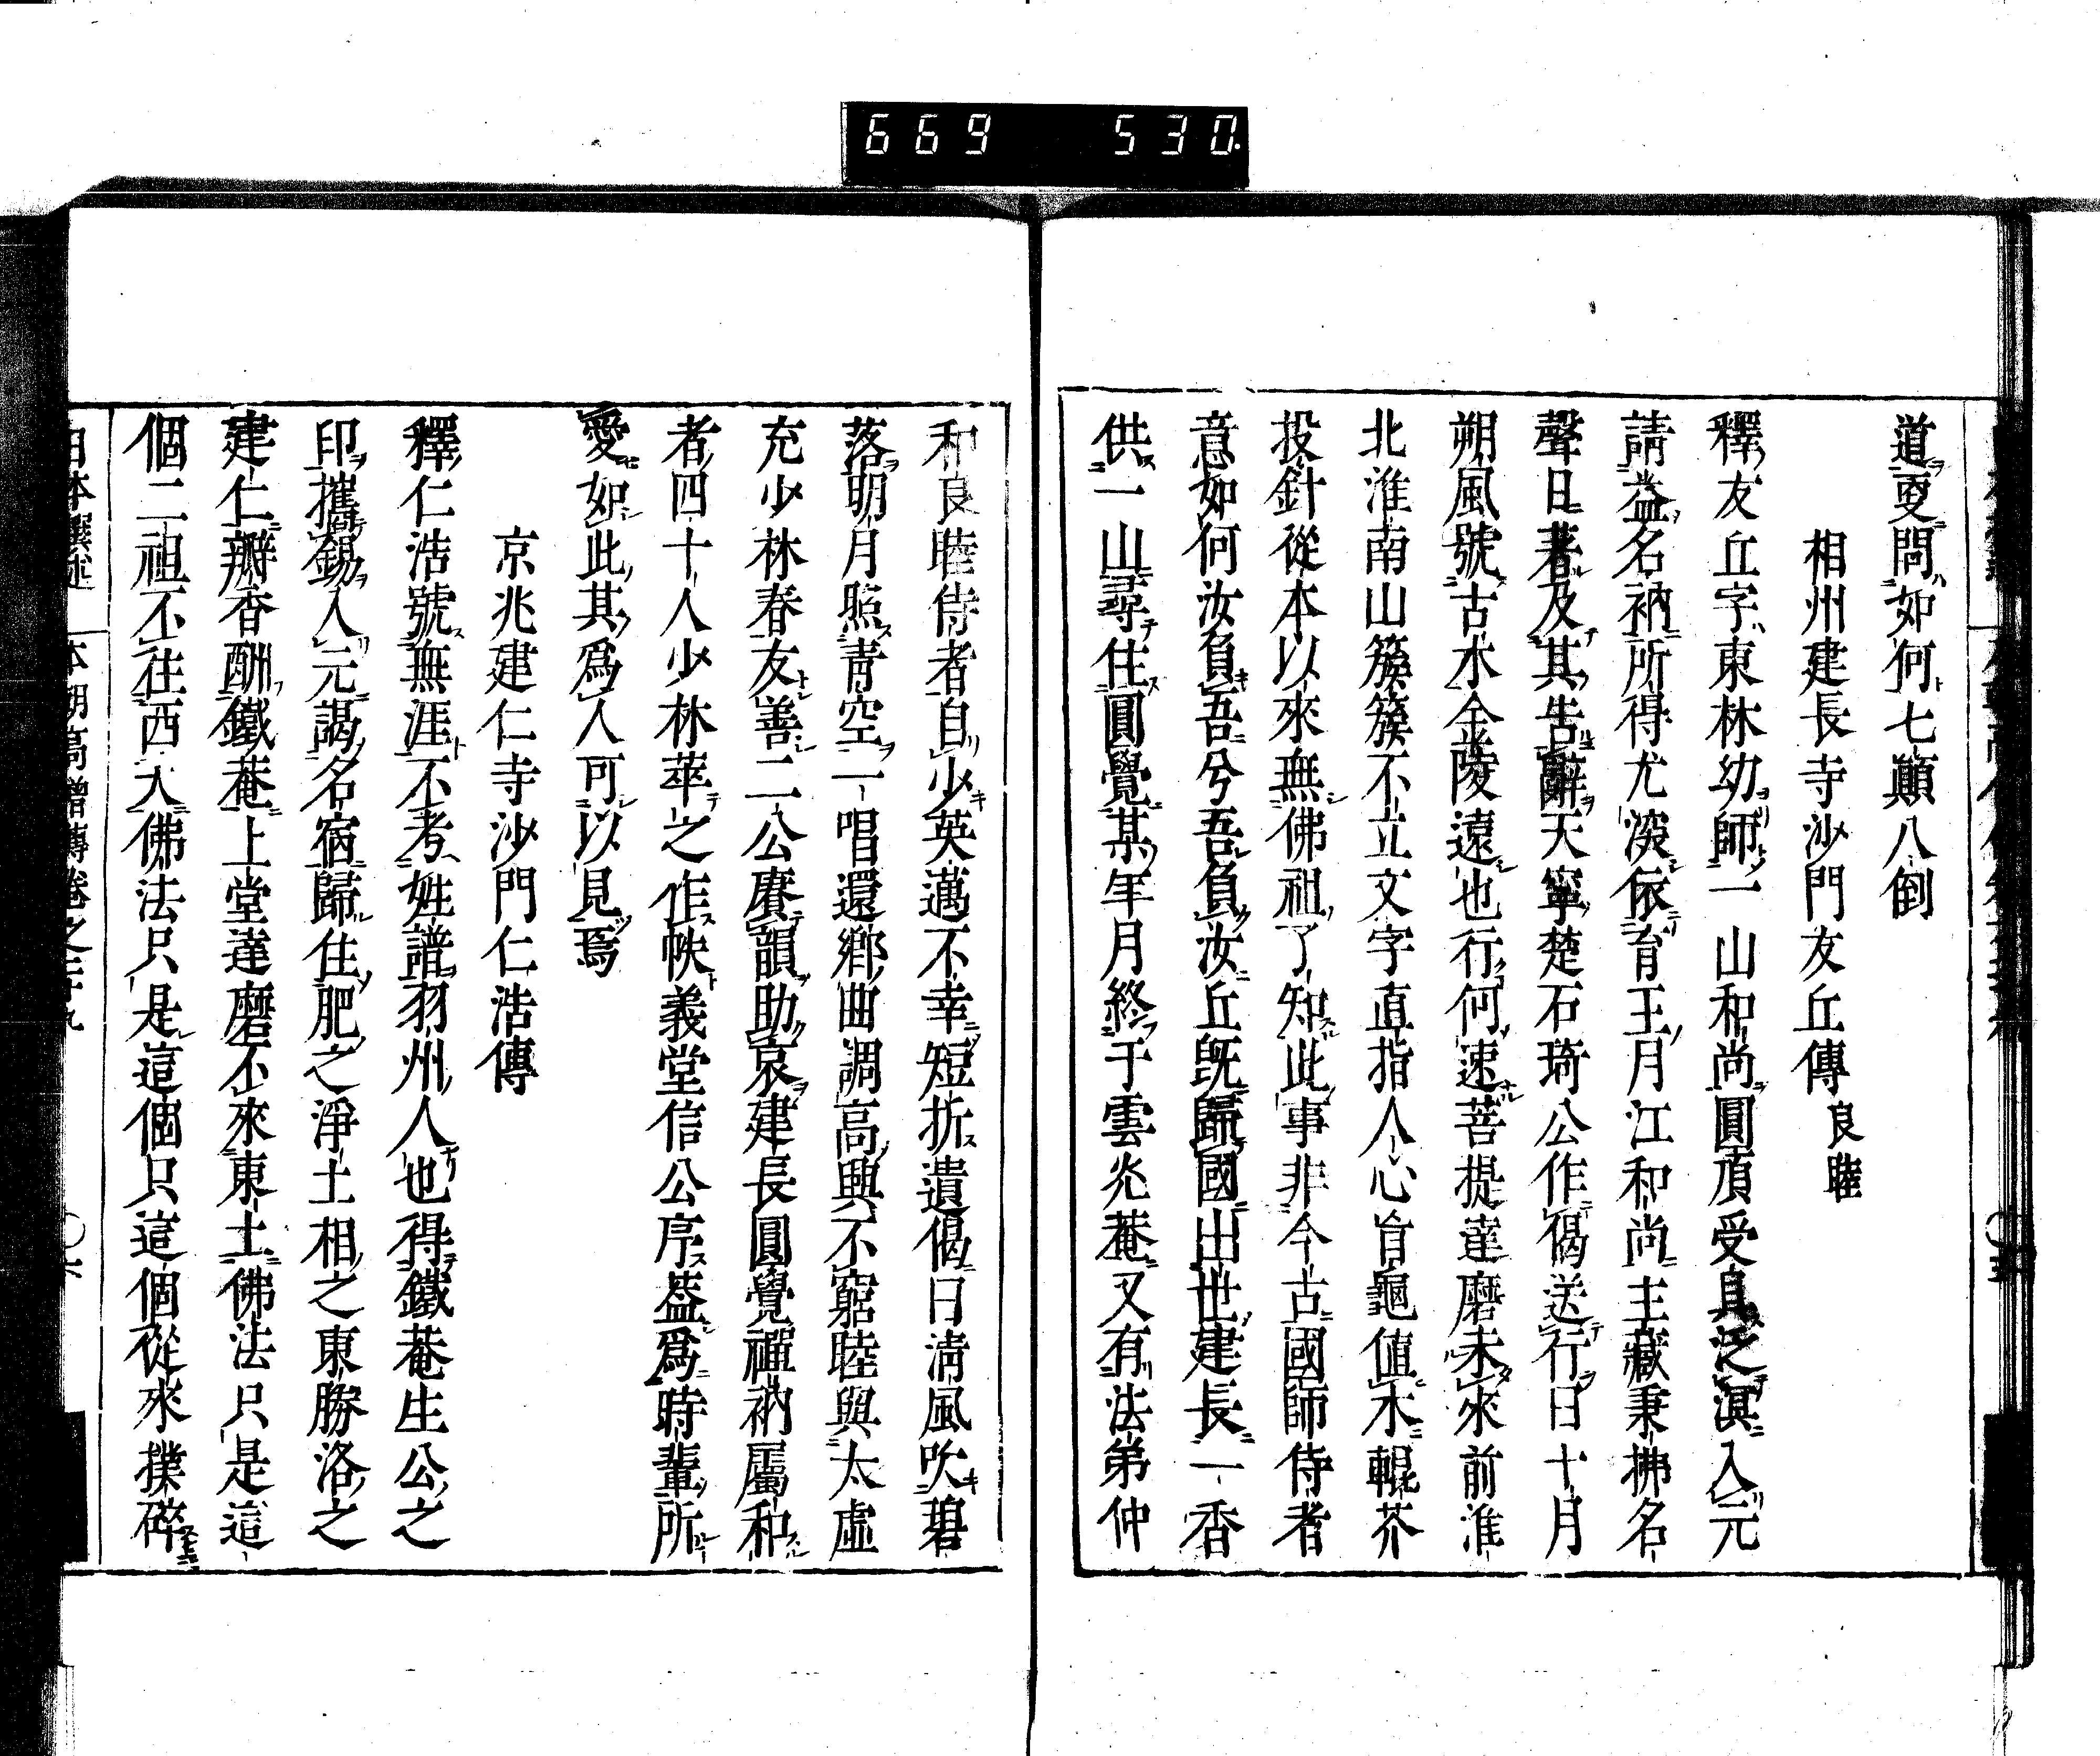 669 530
道更問如何七顛八倒
相州建長寺沙門友丘傳 良睦
釋友丘字東林幼師一山和尚圓頂受具泛溟入元
請益名衲所得尤深依育王月江和尚主藏秉拂名
聲日著及其告辭天寧楚石琦公作偈送行曰十月
朔風號古木金陵遠也行何速菩提達磨未來前淮
北淮南山簇簇不立文字直指人心盲龜値木輥芥
投針從本以來無佛祖了知此事非今古國師侍者
意如何汝負吾兮吾負汝丘既歸國出世建長一香
供一山尋住圓覺某年月終于雲光菴又有法弟仲
和良睦侍者自少英邁不幸短折遺偈曰淸風吹碧
落明月照靑空一唱還鄕曲調高興不窮睦與太虛
充少林春友善二公賡韻助哀建長圓覺禪衲屬和
者四十人少林萃之作帙義堂信公序葢爲時輩所
愛如此其爲人可以見焉
京兆建仁寺沙門仁浩傳
釋仁浩號無涯不考姓譜羽州人也得鐵菴生公之
印攜錫入元謁名宿歸住肥之淨土相之東勝洛之
建仁瓣香酬鐵菴上堂達磨不來東土佛法只是這
個二祖不往西天佛法只是這個只這個從來撲碎
日本撰述 本朝高僧傳卷之二十九 〇六